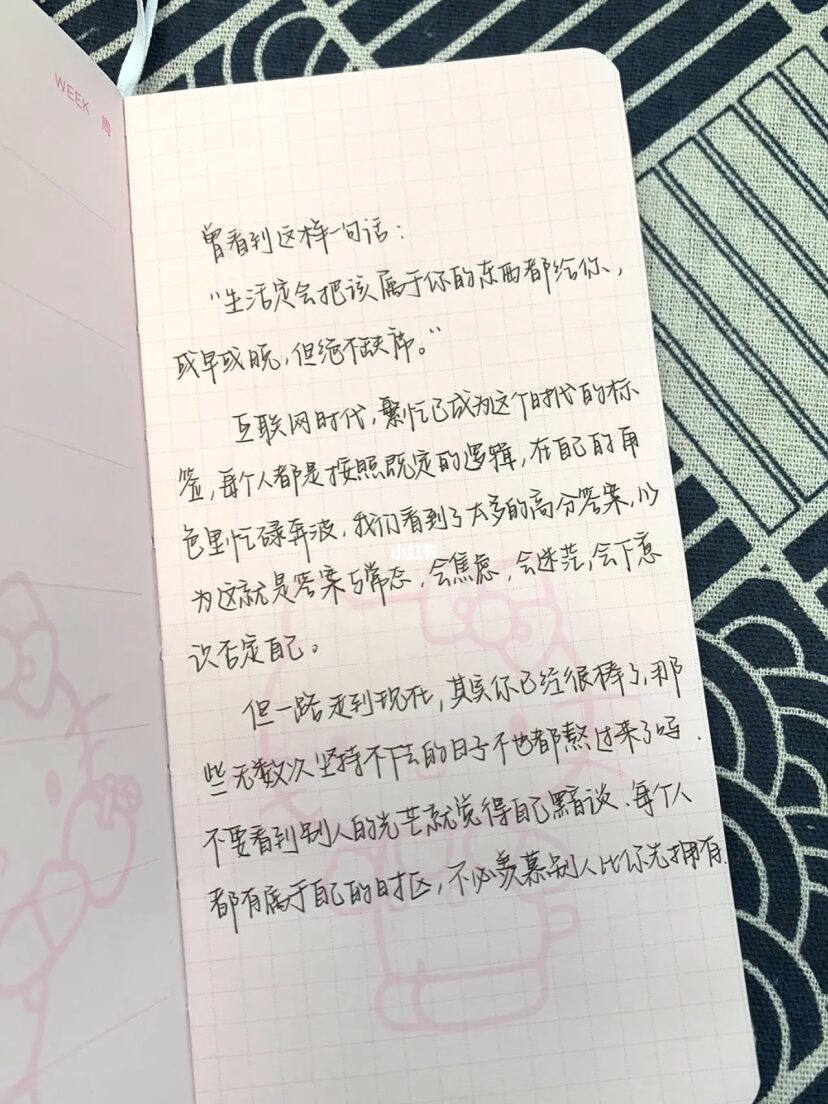 WEEK 周
曾看到这样一句话：
“生活定会把该属于你的东西都给你、
或早或晚，但绝不缺席。”
互联网时代，繁忙已成为这个时代的标
签，每个人都是按照既定的逻辑，在自己的角
色里忙碌奔波，我们看到了太多的高分答案，以
为这就是答案与常态，会焦虑，会迷茫，会下意
识否定自己。
但一路走到现在，其实你已经很棒了，那
些无数次坚持不下去的日子不也都熬过来了吗．
不要看到别人的光芒就觉得自己黯淡、每个人
都有属于自己的时区，不必羡慕别人比你先拥有．
小红书